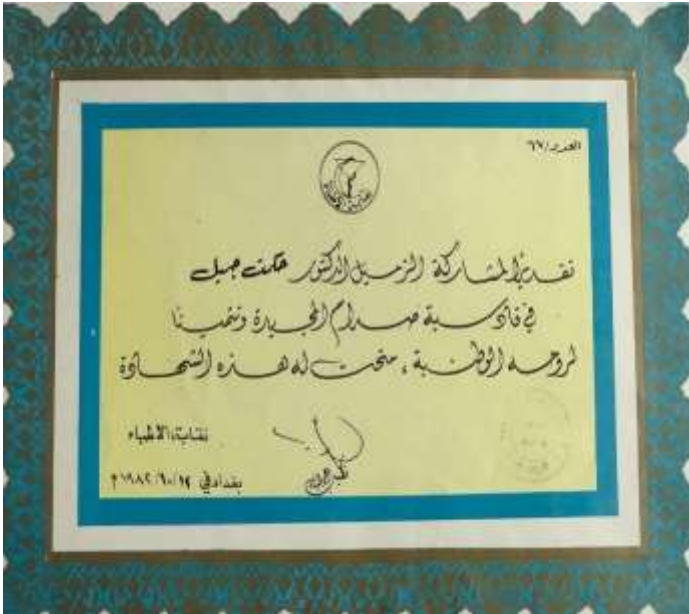 العدد/٦٧
تقديراً لمشاركة الزميل الدكتور حكمت جميل
في قادسية صدام المجيدة وتثميناً
لروحه الوطنية ، منحت له هذه الشهادة
نقابة الأطباء
بغداد في